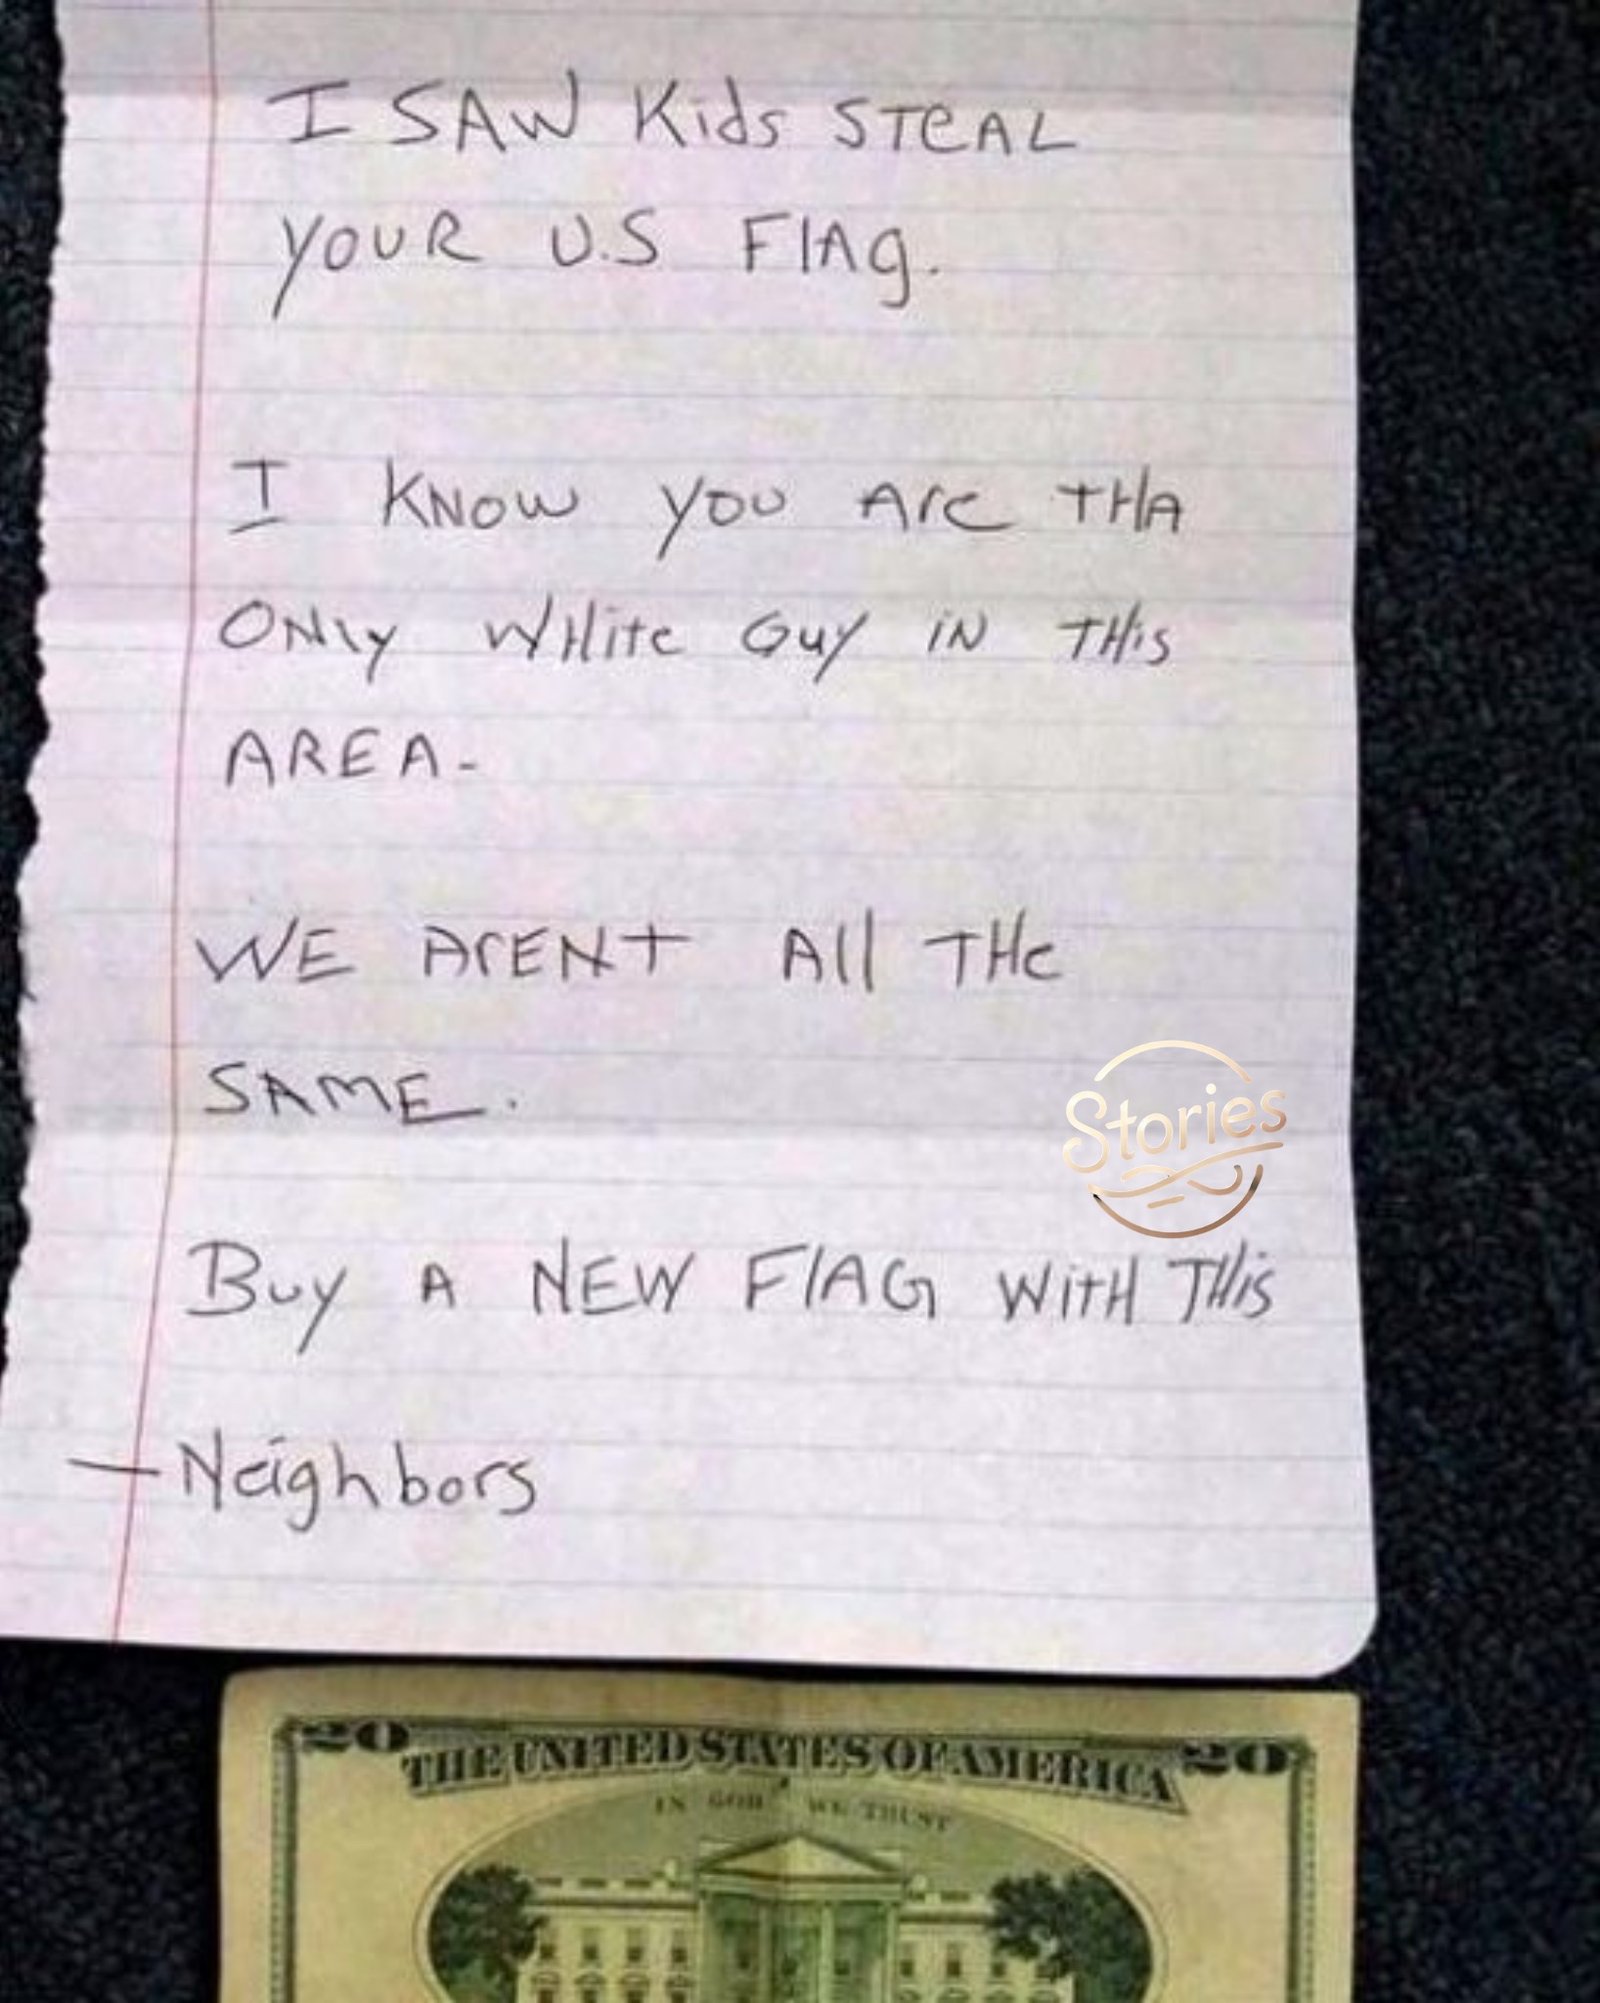 I SAW Kids STEAL
YOUR U.S FlAg.
I KNOW you Are THA
ONly WHite Guy iN THis
AREA-
WE ArENt All THe
SAME.
Stories
Buy A NEW FlAG WiTH THis
- Neighbors
20 THE UNITED STATES OF AMERICA 20
IN GOD WE TRUST